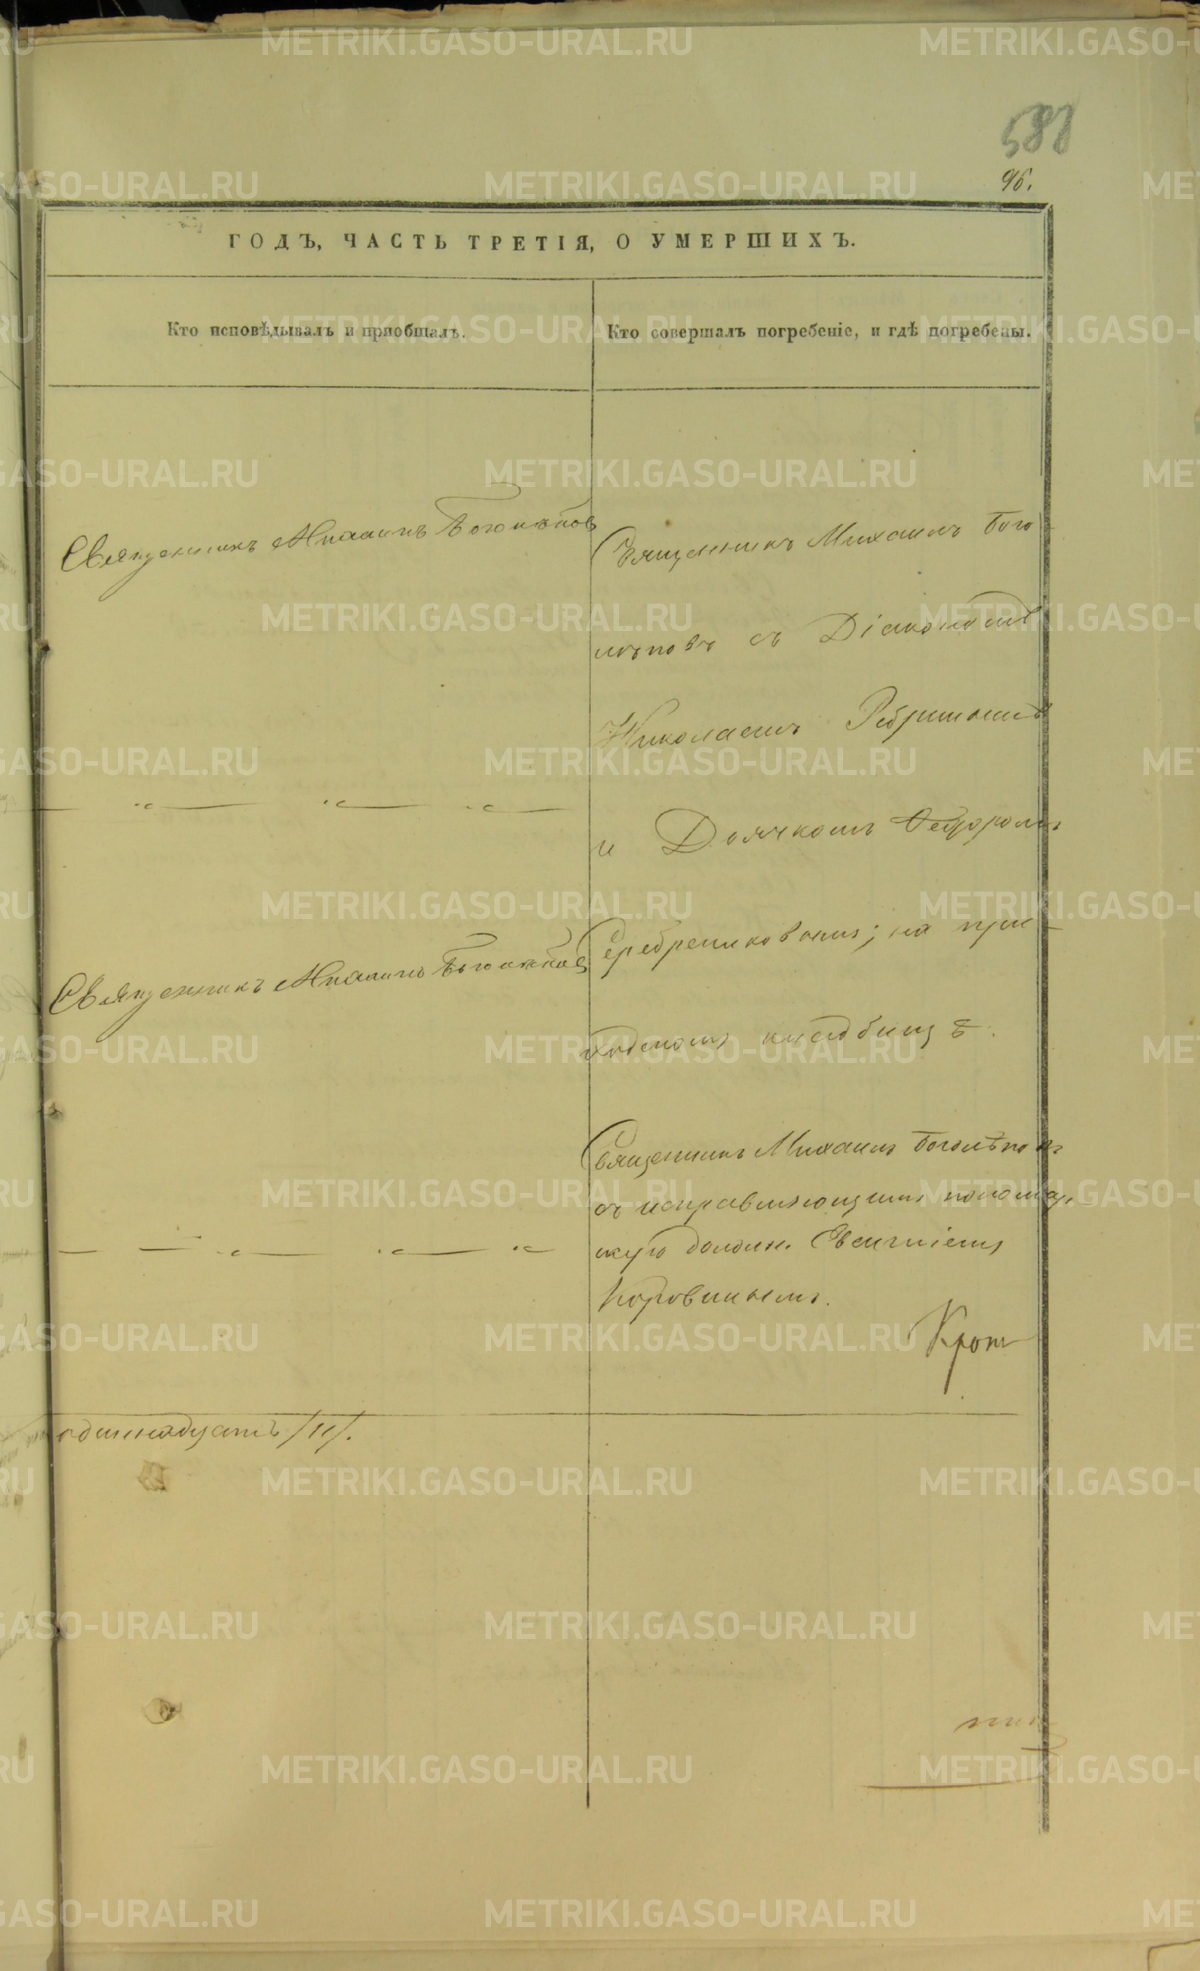 588
96.
ГОДЪ, ЧАСТЬ ТРЕТІЯ, О УМЕРШИХЪ.
Кто исповѣдывалъ и пріобщалъ.
Кто совершалъ погребеніе, и гдѣ погребены.
Священникъ Михаилъ Боголѣповъ
Священникъ Михаилъ Бого
лѣповъ съ Діакономъ
Николаемъ
и Дьячкомъ Ѳедоромъ
Серебрениковымъ; на при
ходскомъ кладбищѣ.
Священникъ Михаилъ Боголѣповъ
Священникъ Михаилъ Боголѣповъ
съ исправляющимъ понома,
скую должн. Евгеніемъ
Коровинымъ.
Кромѣ
одиннадцать /11/.
METRIKI.GASO-URAL.RU